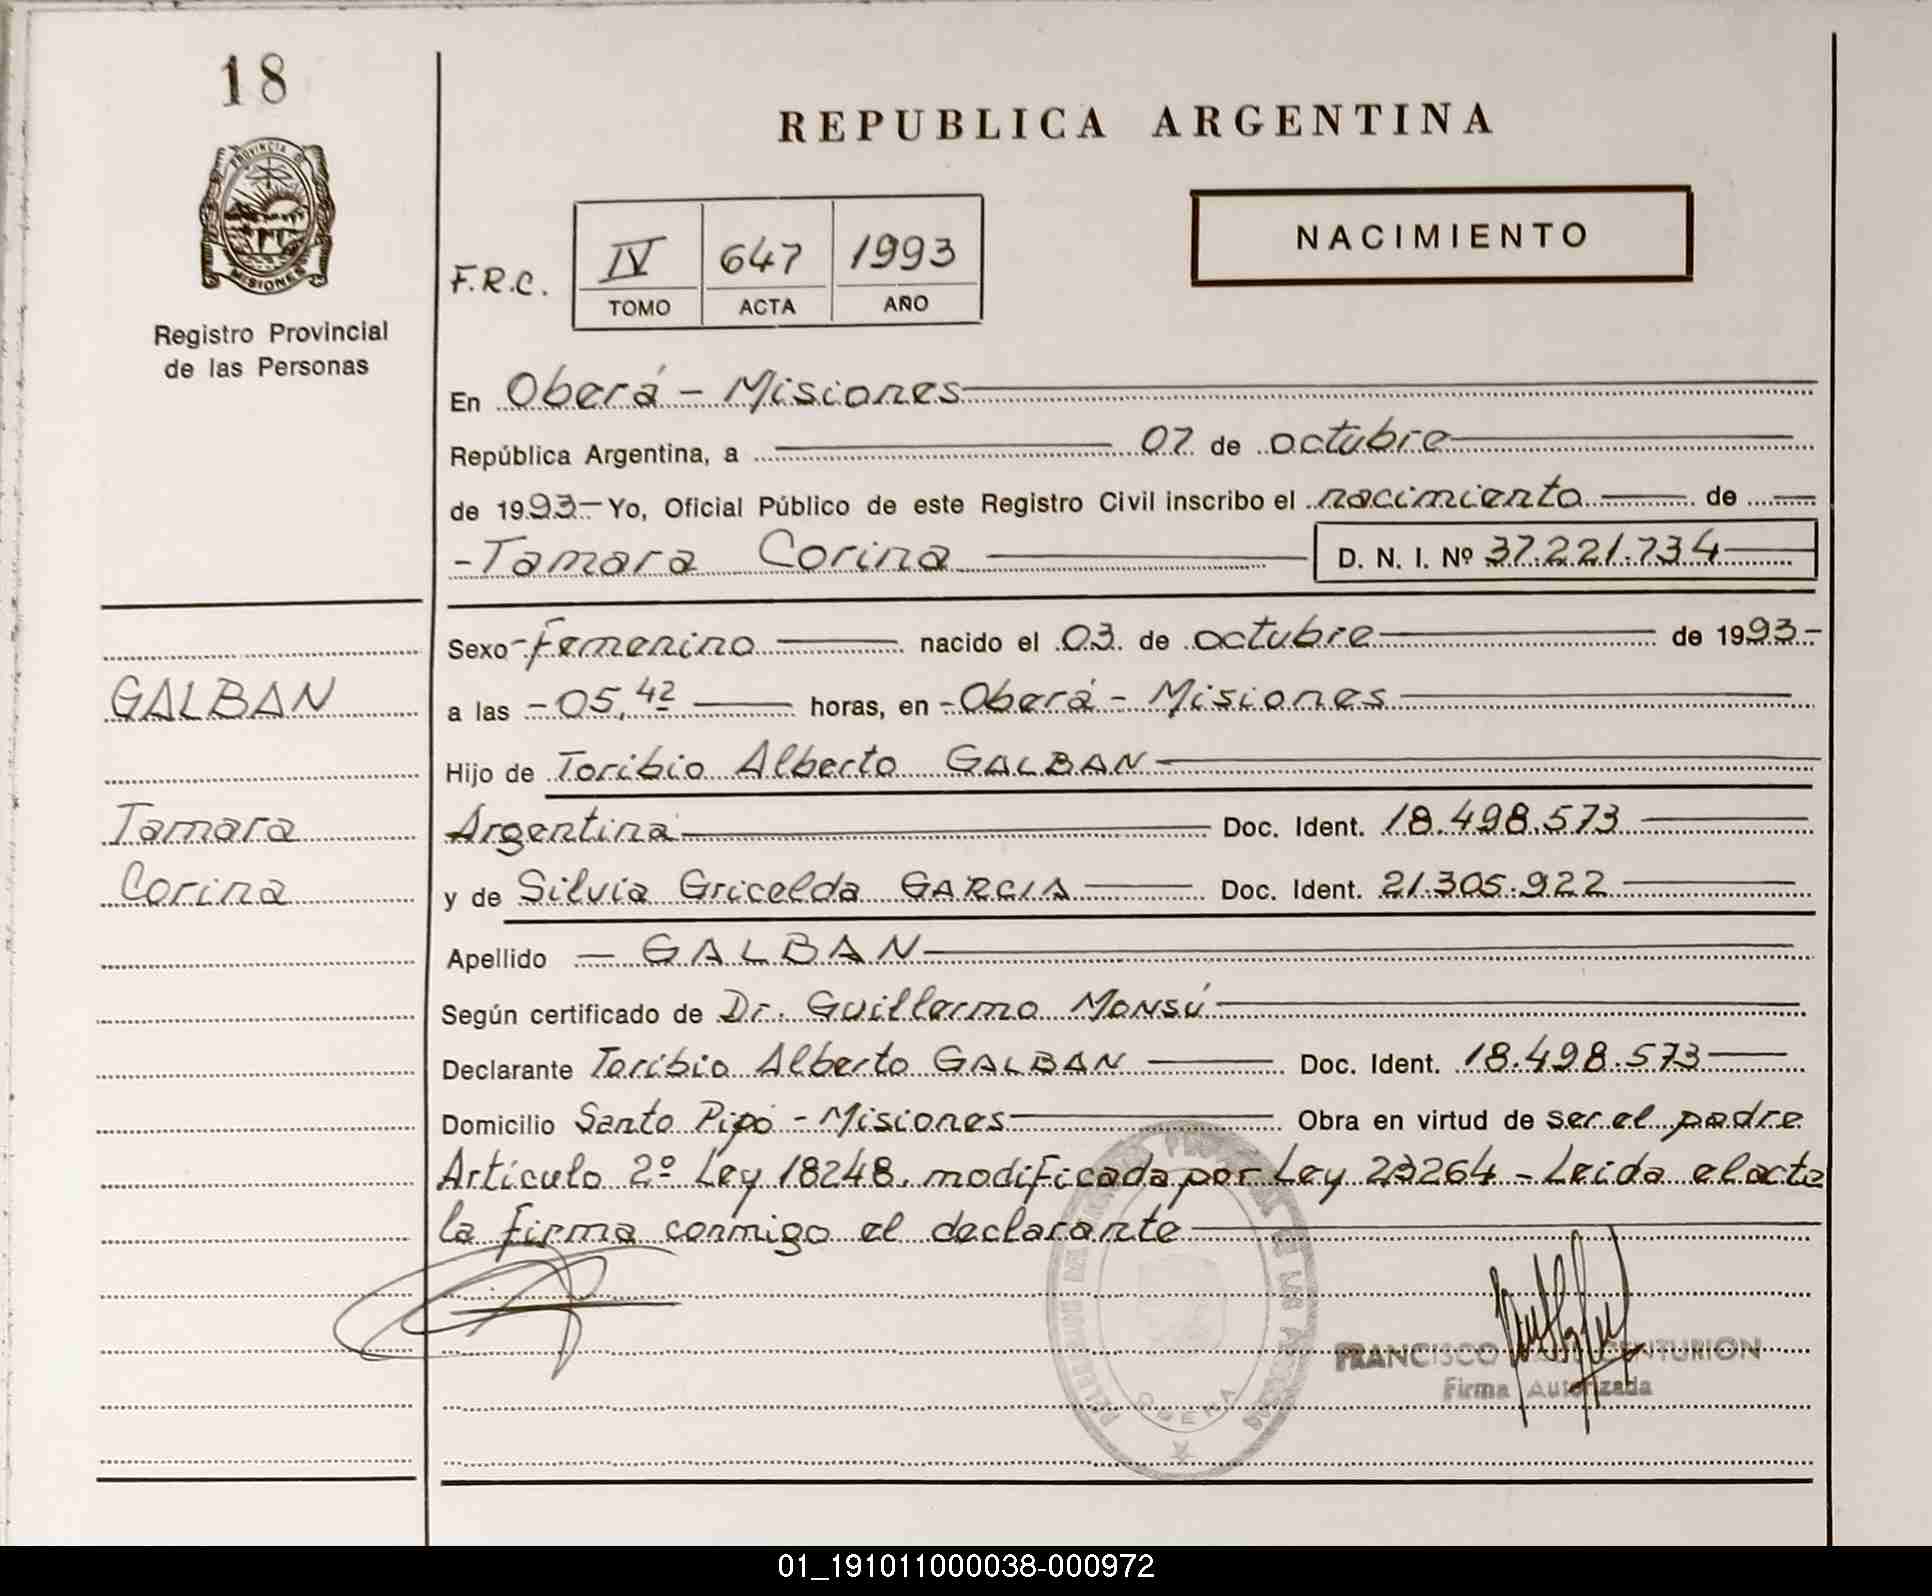 18
PROVINCIA D
MISIONES
Registro Provincial
de las Personas
REPUBLICA ARGENTINA
NACIMIENTO
F.R.C. IV 647 1993
TOMO ACTA AÑO
En Oberá - Misiones
República Argentina, a 07 de octubre
de 1993- Yo, Oficial Público de este Registro Civil inscribo el nacimiento de
- Tamara Corina D. N. I. Nº 37.221.734
Sexo - Femenino nacido el 03 de octubre de 1993-
GALBAN
a las - 05,42 horas, en - Oberá - Misiones
Hijo de Toribio Alberto GALBAN
Tamara
Argentina Doc. Ident. 18.498.573
Corina
y de Silvia Gricelda GARCIA Doc. Ident. 21.305.922
Apellido - GALBAN
Según certificado de Dr. Guillermo Monsú
Declarante Toribio Alberto GALBAN Doc. Ident. 18.498.573
Domicilio Santo Pipó - Misiones Obra en virtud de ser el padre
Artículo 2º Ley 18248, modificada por Ley 23264 - Leida el acta
la firma conmigo el declarante
FRANCISCO CENTURION
Firma Autorizada
01_191011000038-000972